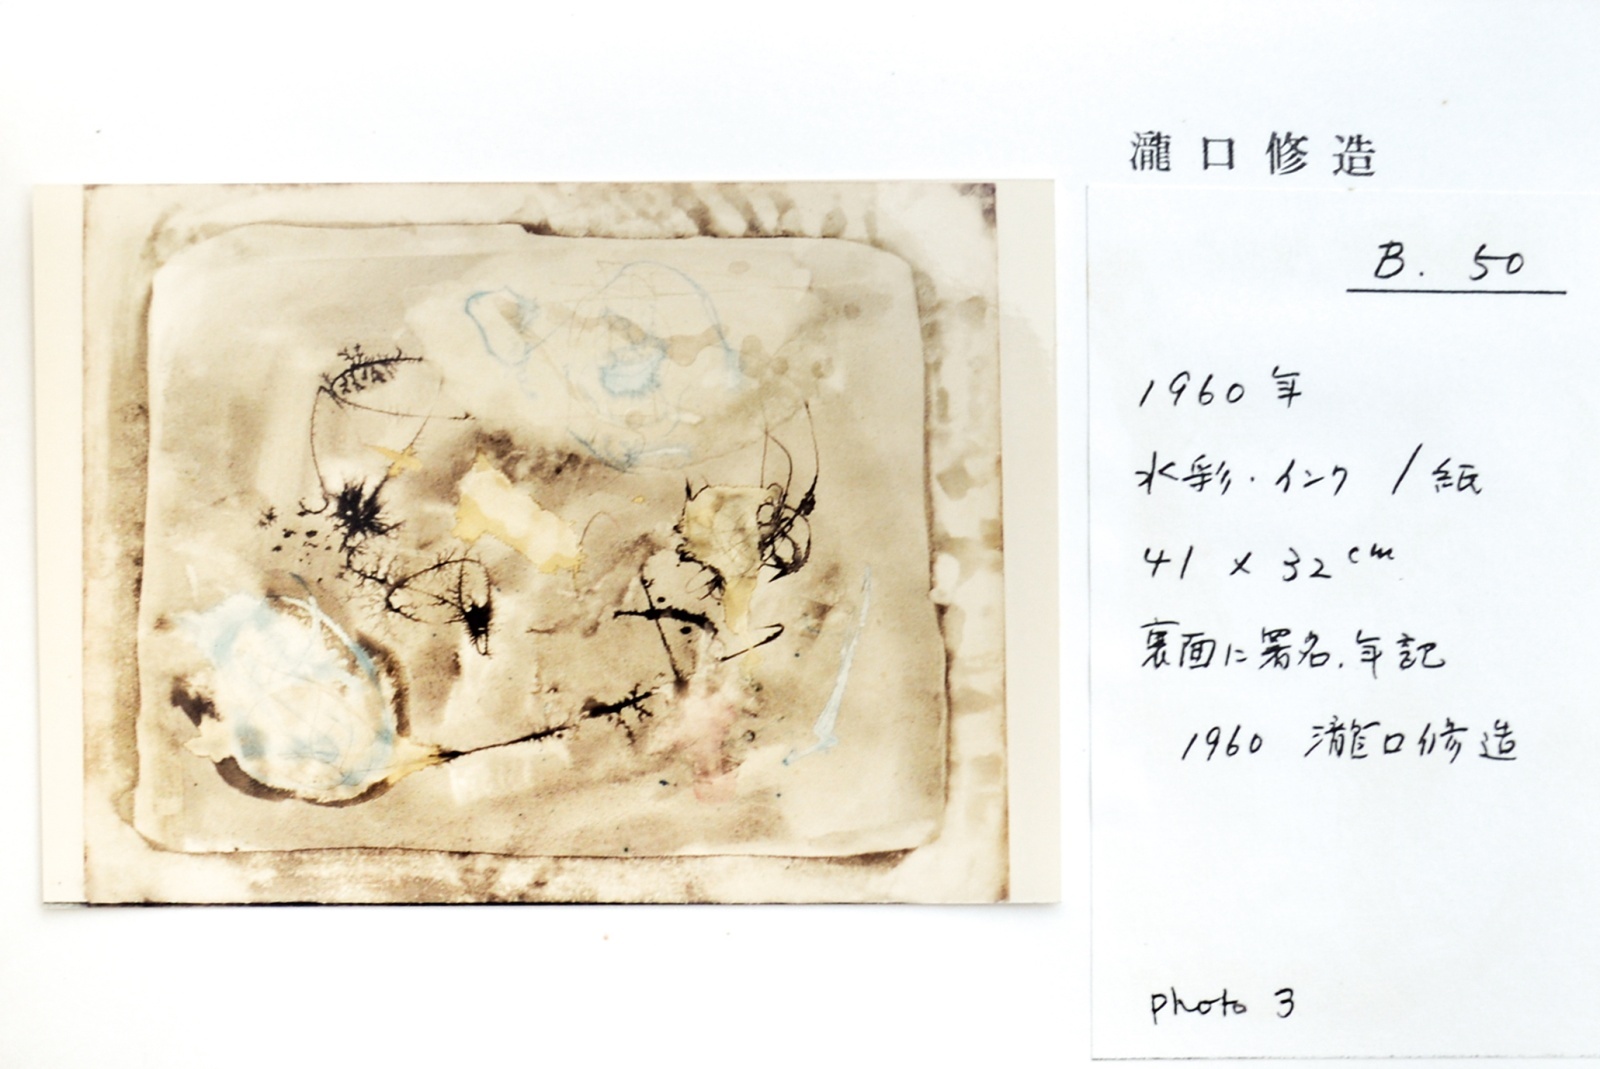 瀧口修造
B. 50
1960年
水彩・インク / 紙
41 x 32cm
裏面に署名、年記
1960 瀧口修造
photo 3